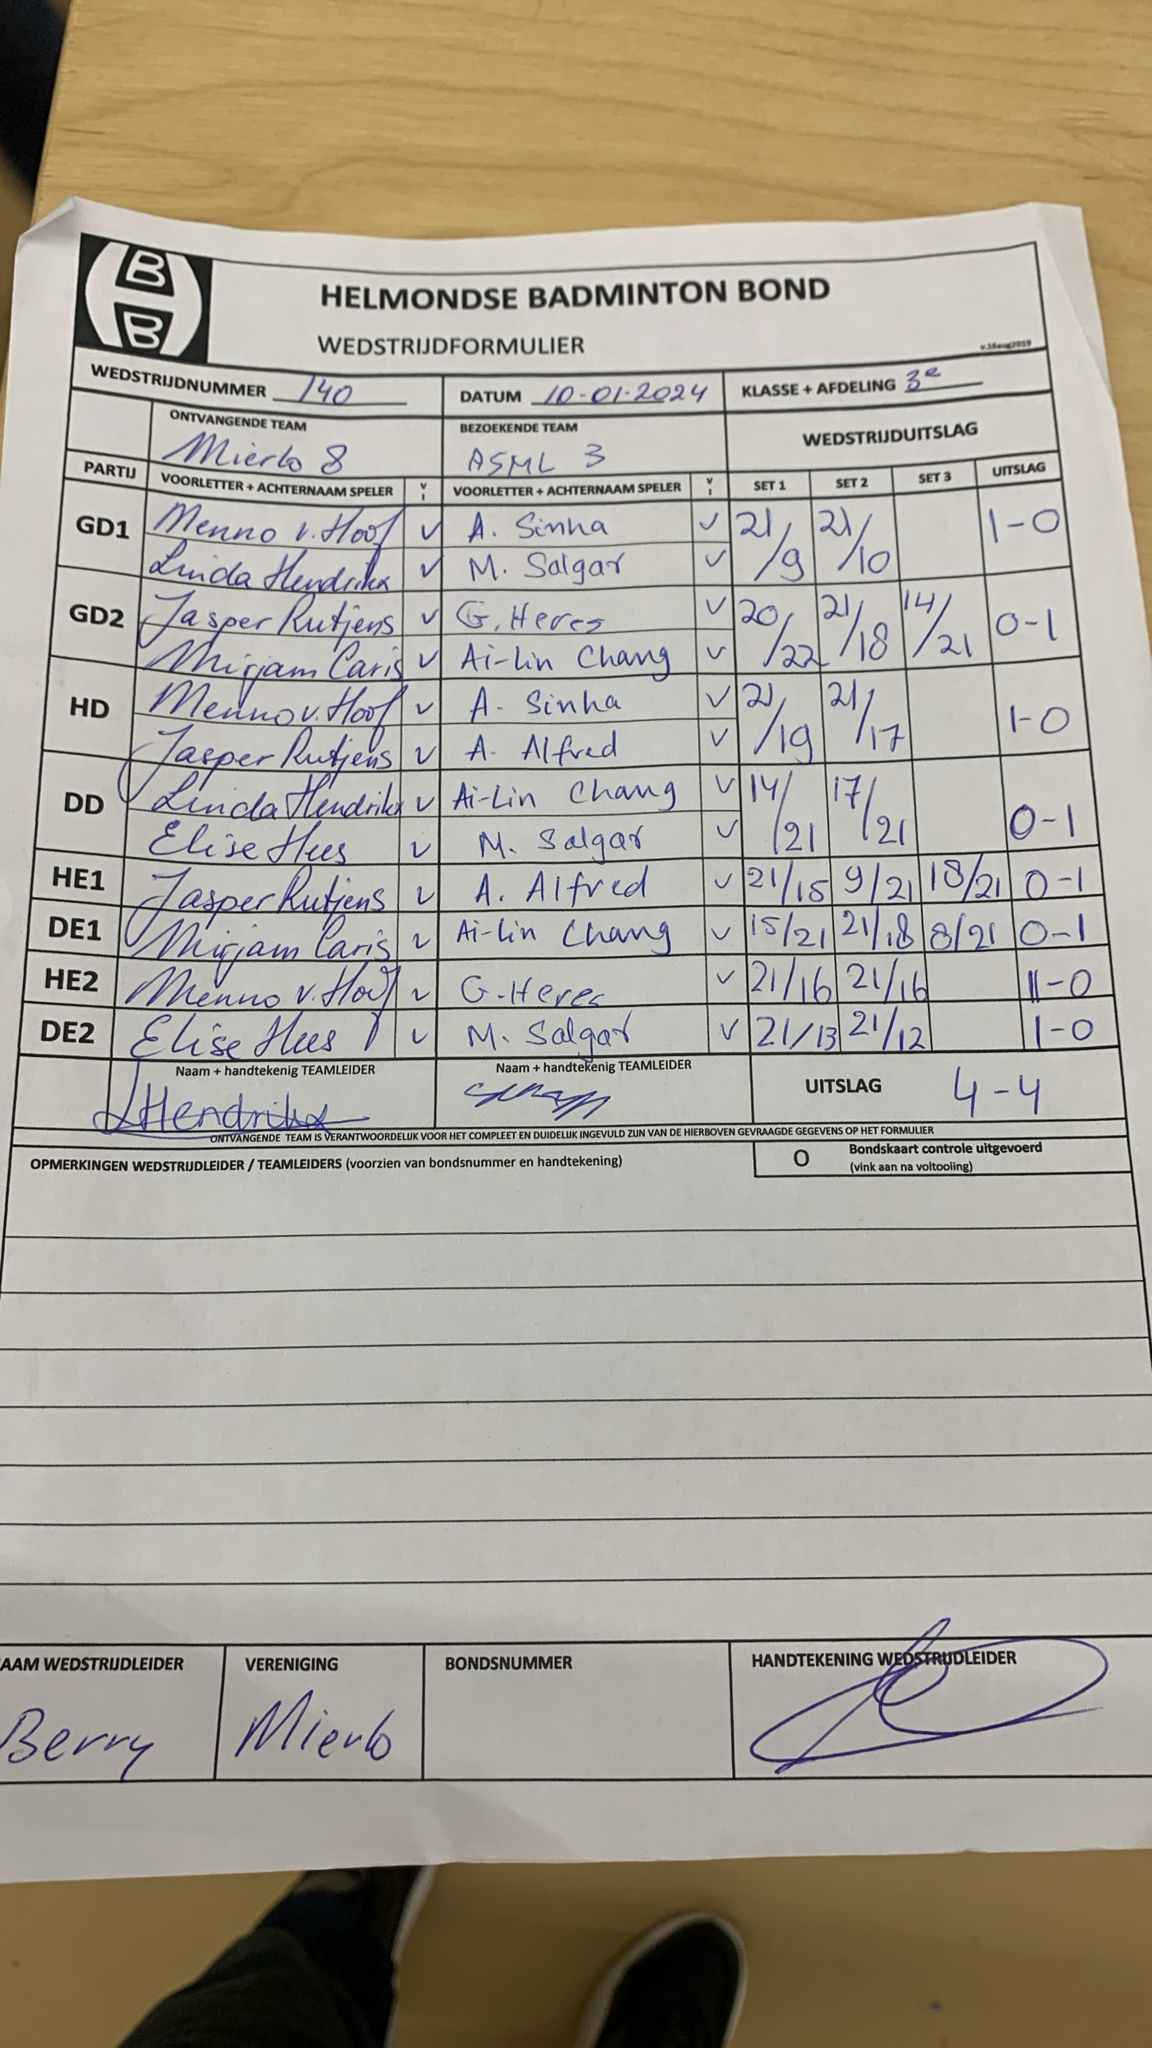 B
B
HELMONDSE BADMINTON BOND
WEDSTRIJDFORMULIER
v.16aug2019
WEDSTRIJDNUMMER 140 DATUM 10-01-2024 KLASSE + AFDELING 3e
ONTVANGENDE TEAM BEZOEKENDE TEAM WEDSTRIJDUITSLAG
Mierlo 8 ASML 3
PARTIJ VOORLETTER + ACHTERNAAM SPELER V I VOORLETTER + ACHTERNAAM SPELER V I SET 1 SET 2 SET 3 UITSLAG
GD1 Menno v. Hoof V A. Sinha V 21/9 21/10 1-0
Linda Hendrikx V M. Salgar V
GD2 Jasper Rutjens V G. Heres V 20/22 21/18 14/21 0-1
Mirjam Caris V Ai-Lin Chang V
HD Menno v. Hoof V A. Sinha V 21/19 21/17 1-0
Jasper Rutjens V A. Alfred V
DD Linda Hendrikx V Ai-Lin Chang V 14/21 17/21 0-1
Elise Hees V M. Salgar V
HE1 Jasper Rutjens V A. Alfred V 21/15 9/21 18/21 0-1
DE1 Mirjam Caris V Ai-Lin Chang V 15/21 21/18 8/21 0-1
HE2 Menno v. Hoof V G. Heres V 21/16 21/16 1-0
DE2 Elise Hees V M. Salgar V 21/13 21/12 1-0
Naam + handtekenig TEAMLEIDER Naam + handtekening TEAMLEIDER UITSLAG 4-4
LHendrikx
ONTVANGENDE TEAM IS VERANTWOORDELIJK VOOR HET COMPLEET EN DUIDELIJK INGEVULD ZIJN VAN DE HIERBOVEN GEVRAAGDE GEGEVENS OP HET FORMULIER
OPMERKINGEN WEDSTRIJDLEIDER / TEAMLEIDERS (voorzien van bondsnummer en handtekening) O Bondskaart controle uitgevoerd
(vink aan na voltooling)
AAM WEDSTRIJDLEIDER VERENIGING BONDSNUMMER HANDTEKENING WEDSTRIJDLEIDER
Berry Mierlo